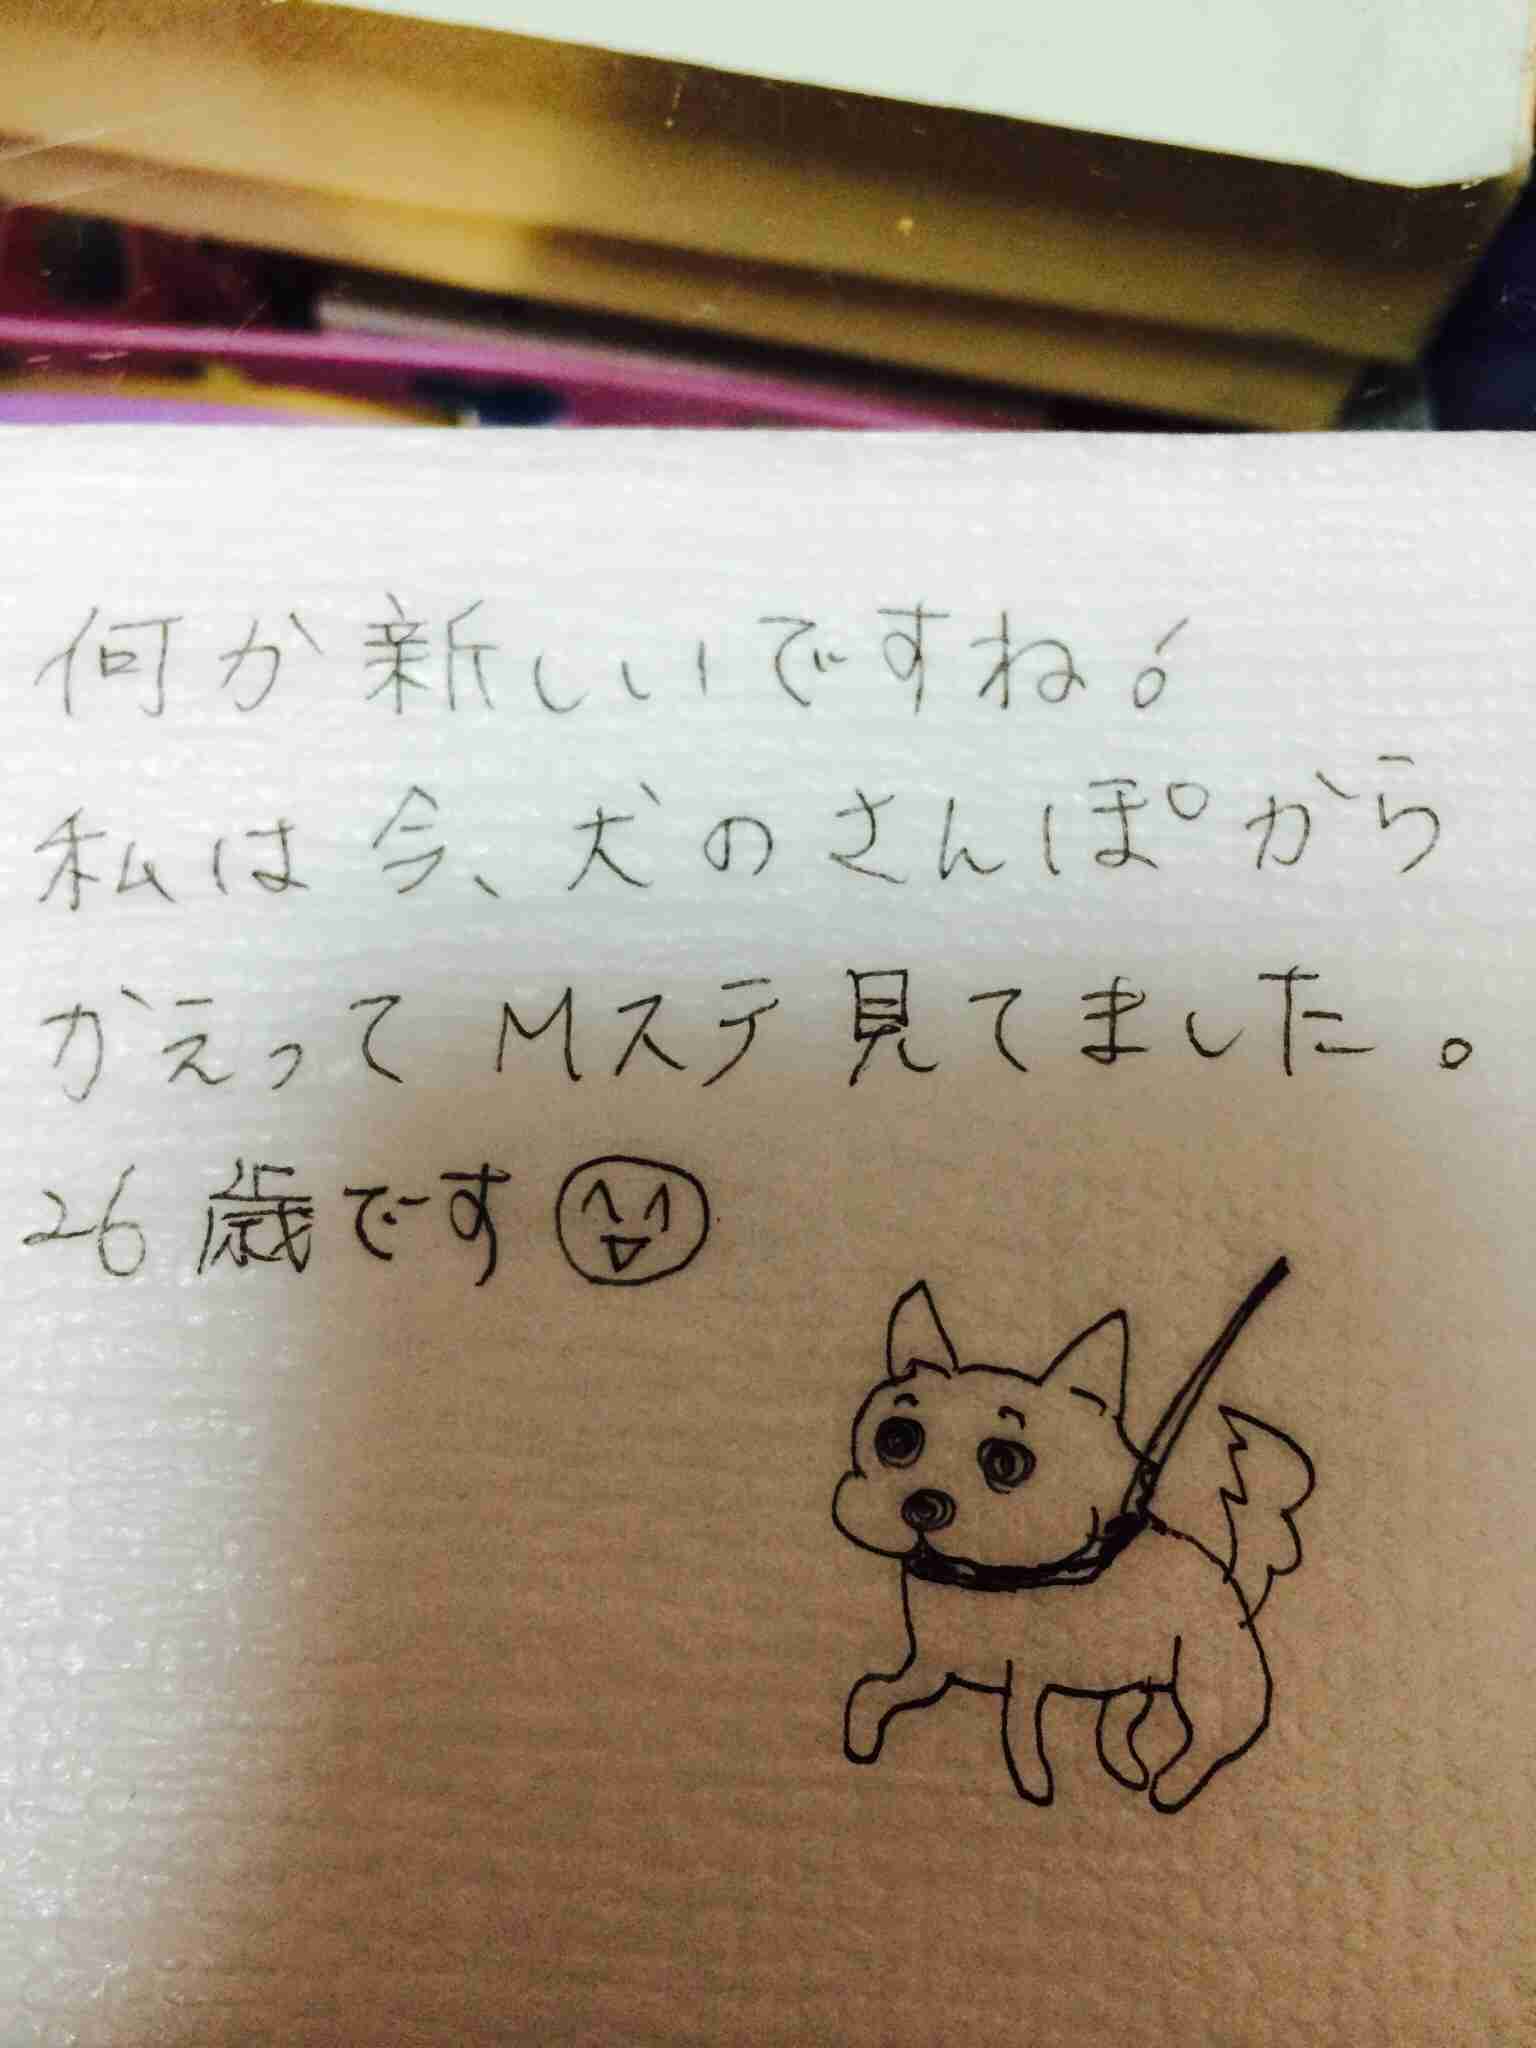 何か新しいですね!
私は今、犬のさんぽから
かえってMステ見てました。
26歳です